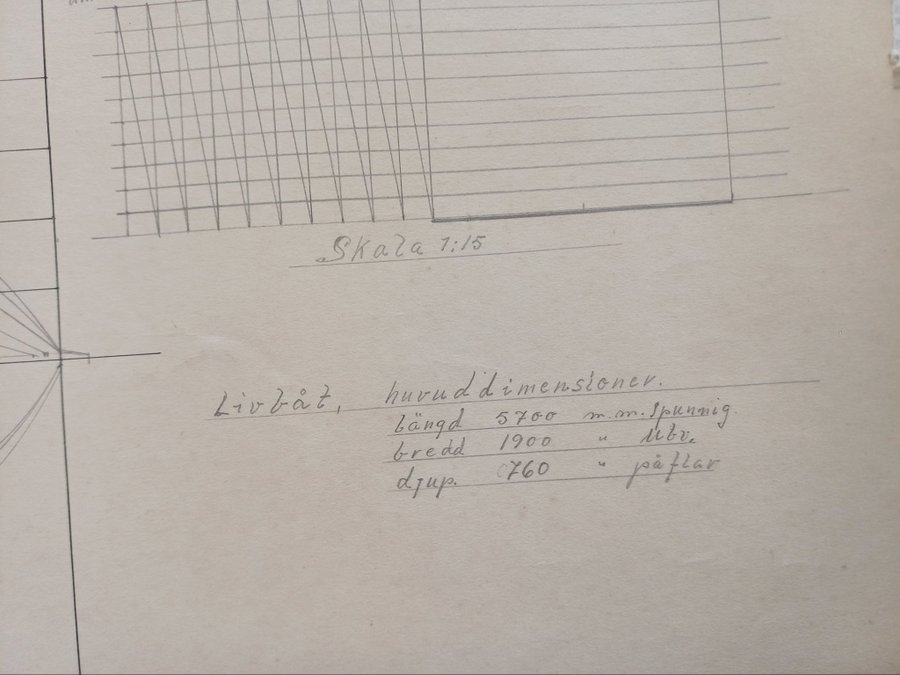 Skala 1:15
Livbåt, huvuddimensioner.
längd 5700 m.m. Spunnig.
bredd 1900 "
djup. 760 " på flar